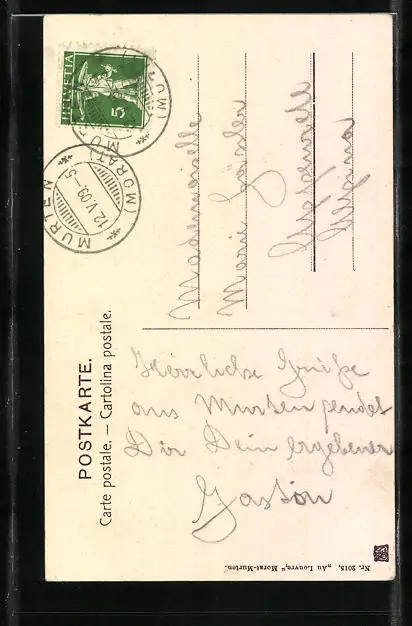 POSTKARTE.
Carte postale. — Cartolina postale.
HELVETIA
5
MURTEN
(MORAT)
12.V.09.-5
MURTEN
(MORAT)
Mademoiselle
Marie
Herrliche Grüße
aus Murten sendet
Dir Dein ergebener
Gaston
Nr. 2018, „Au Louvre," Morat-Murten.